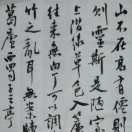 山不在高有僊則
則靈斯是陋室
上階綠草色入簾
往來無白丁可以
竹之亂耳無案牘
葛廬西蜀子雲亭